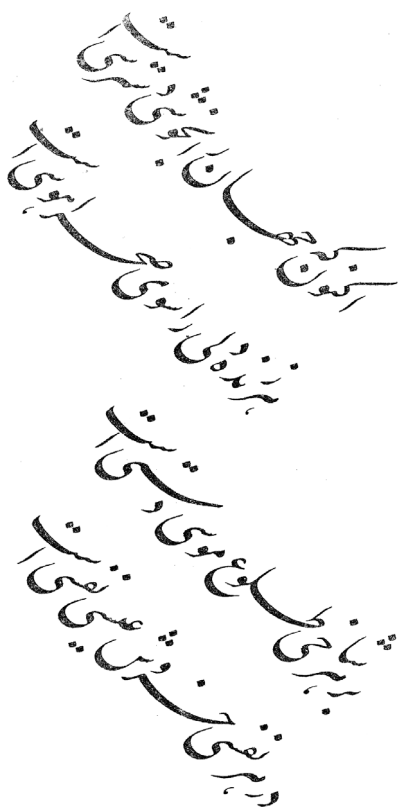 اکنون که جهان را بخوشی دسترسی است
هر زنده دلی را سوی صحرا هوسی است
بر هر شاخی طلوع موسی دستی است
در هر نفسی خروش عیسی نفسی است